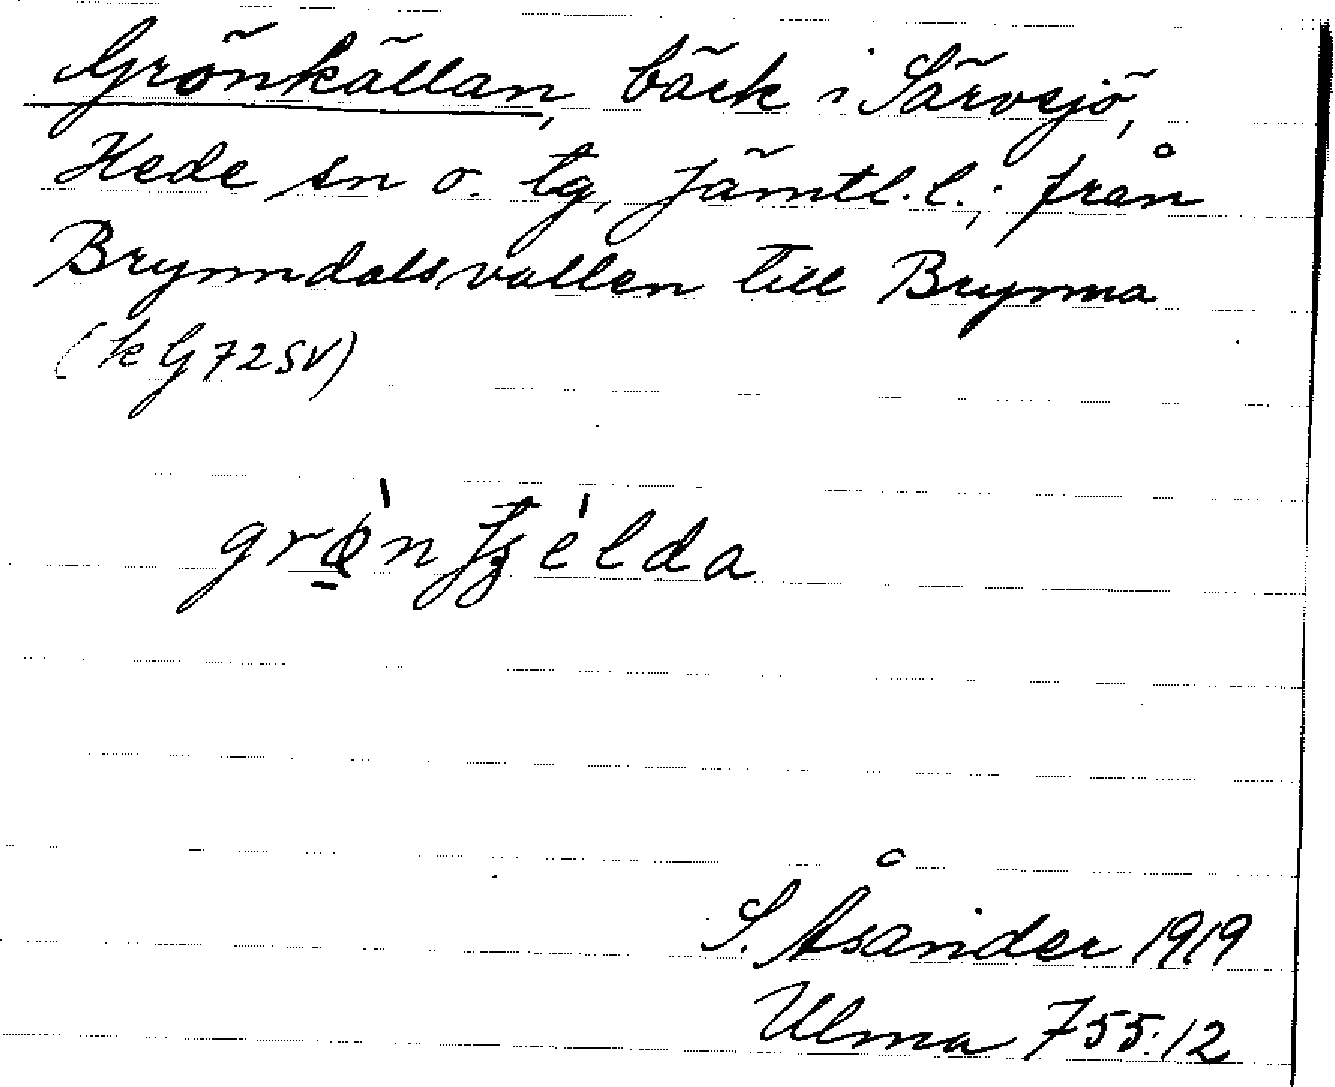 Grönkällan, bäck i Särvsjö,
Hede sn o. tg, Jämtl. l.; från
Brynndalsvallen till Brynna
(k G 72 SV)
S. Åsander 1919
Ulma 755:12